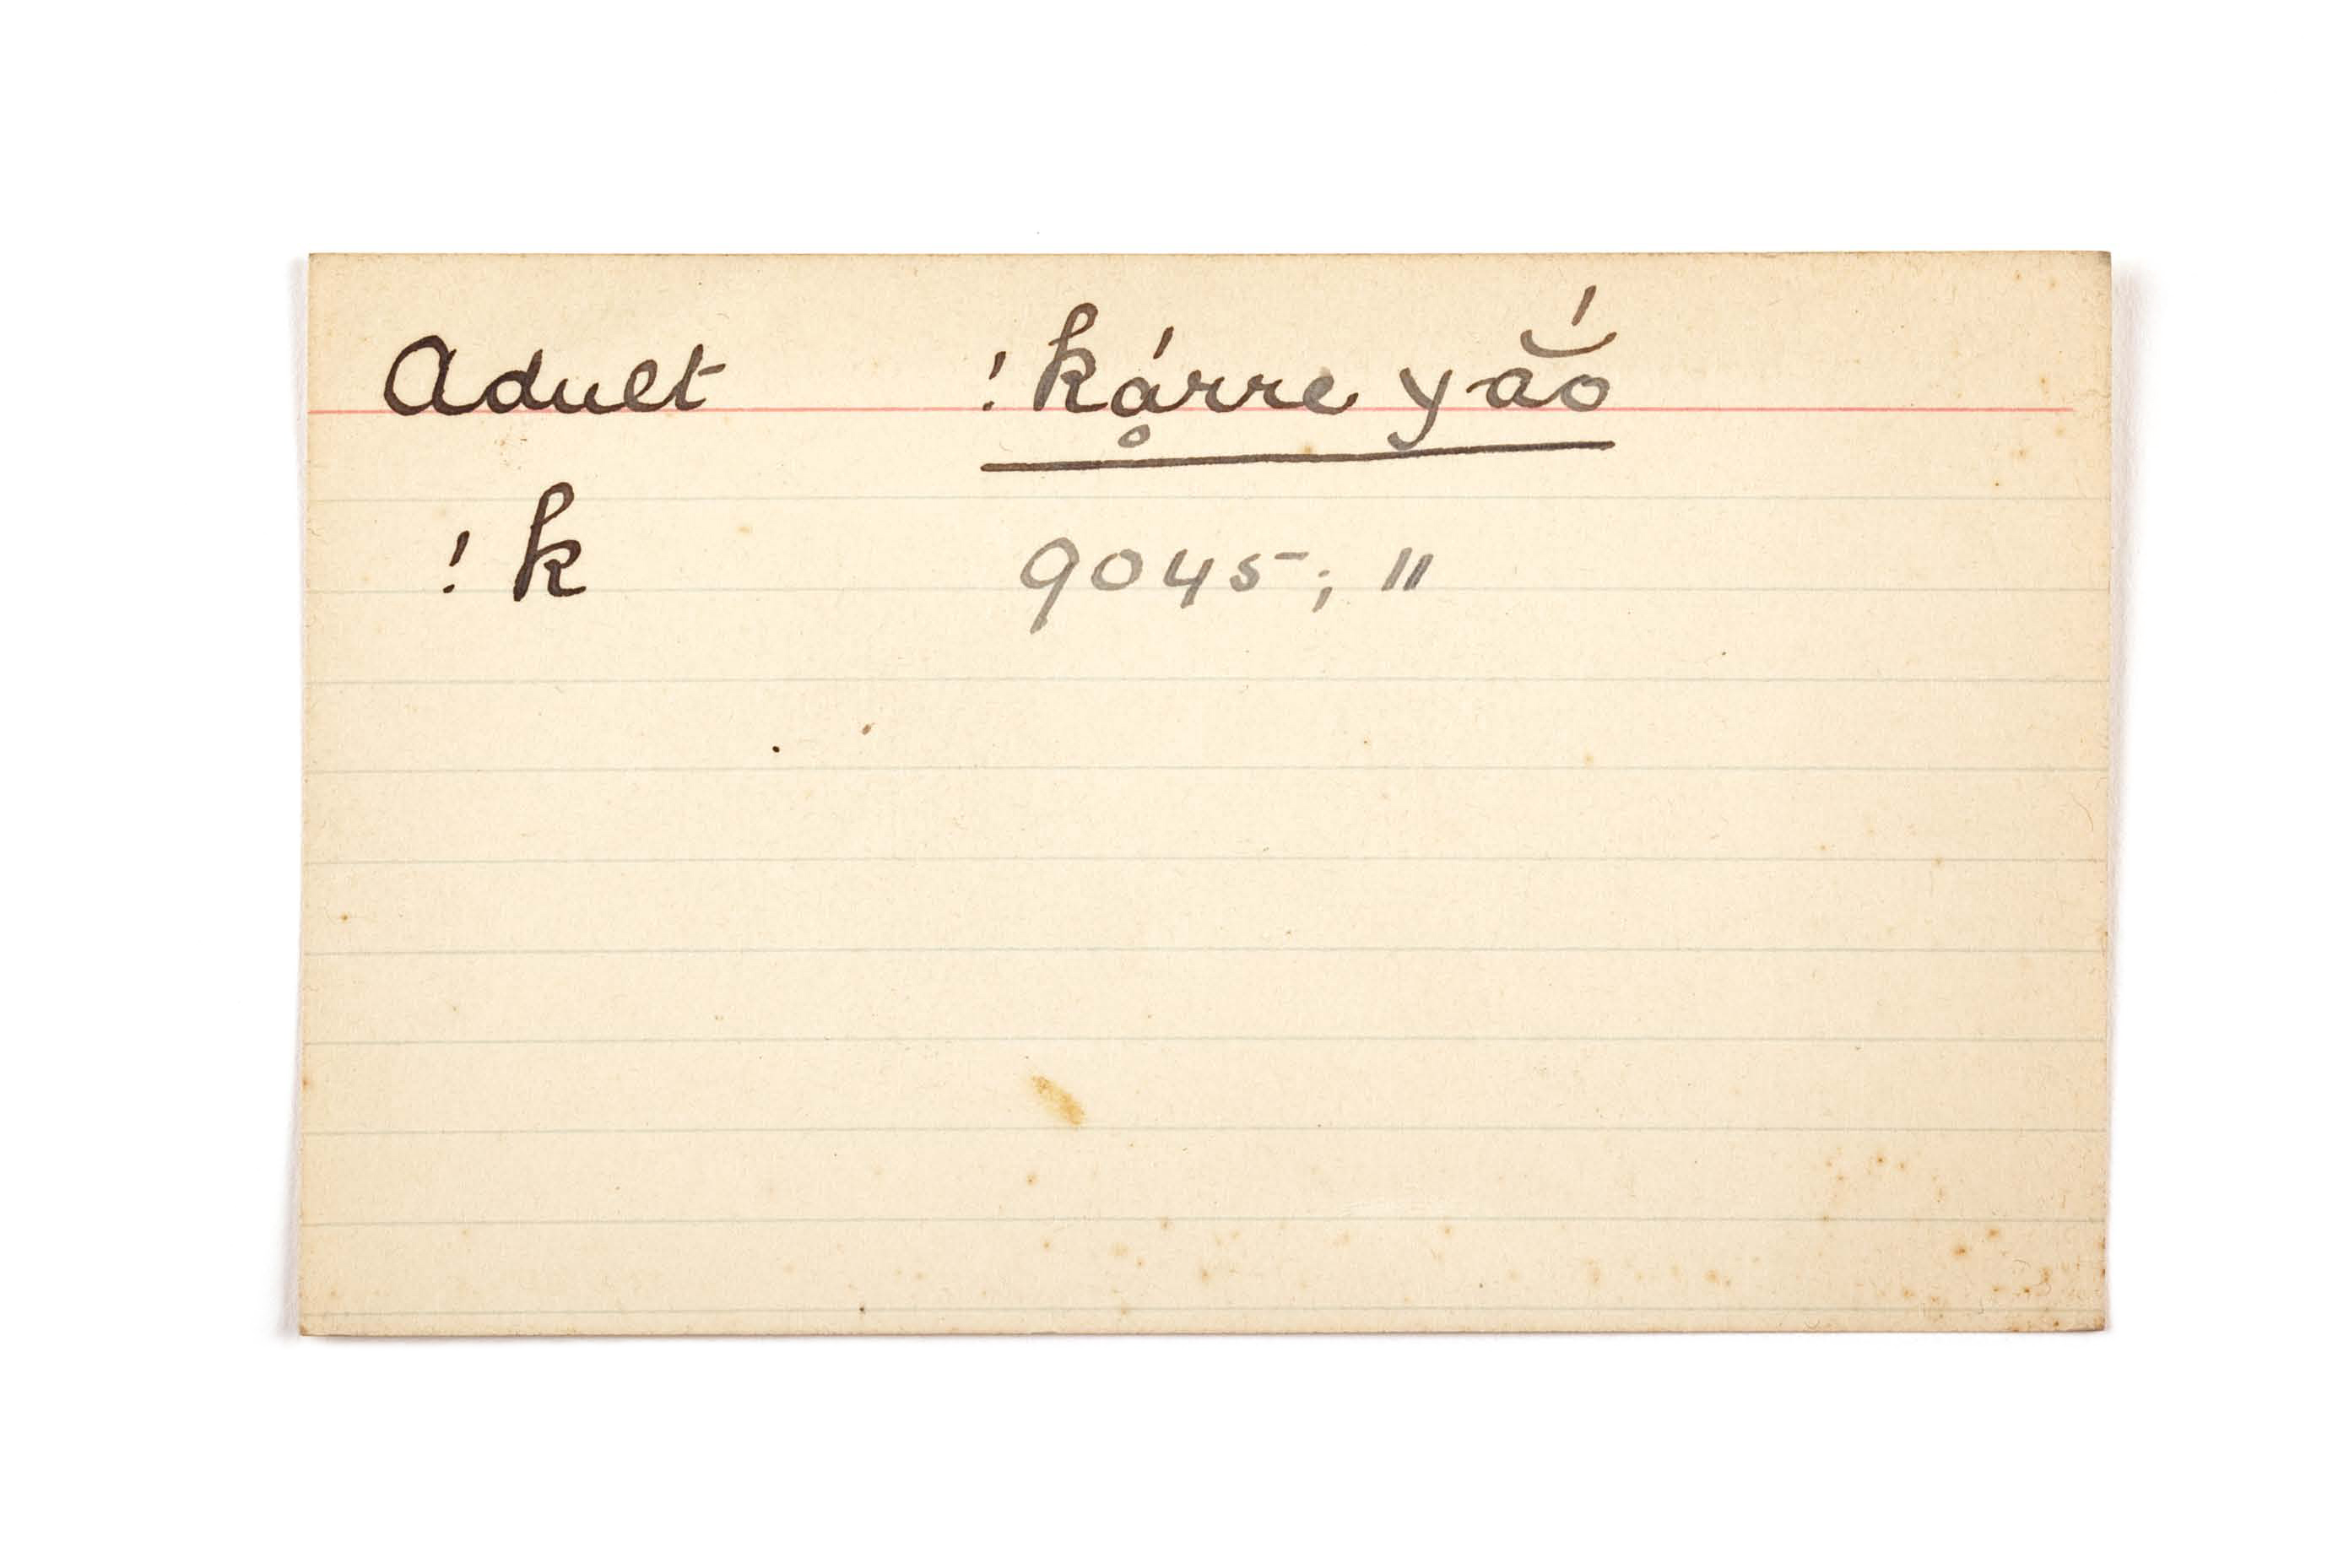 Adult !kǻrre yăó
!k 9045; 11